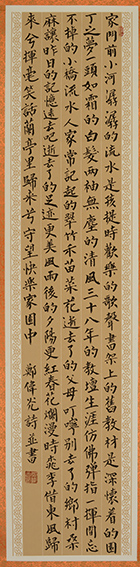 家門前小河潺潺的流水是孩提時歡樂的歌聲書架上的舊教材是深懷着的園
丁之夢一頭如霜的白髮兩袖無塵的清風三十八年的教壇生涯彷彿彈指一揮間忘
不掉的小橋流水人家常記起的翠竹禾苗菜花逝去了的父母叮嚀別去了的鄉村桑
麻讓昨日的記憶遠去吧逝去了的足迹更美風雨後的夕陽更紅春花爛漫時李借東風歸
來兮揮毫笑話蘭亭里歸來兮守望快樂家園中
鄭偉光詩並書